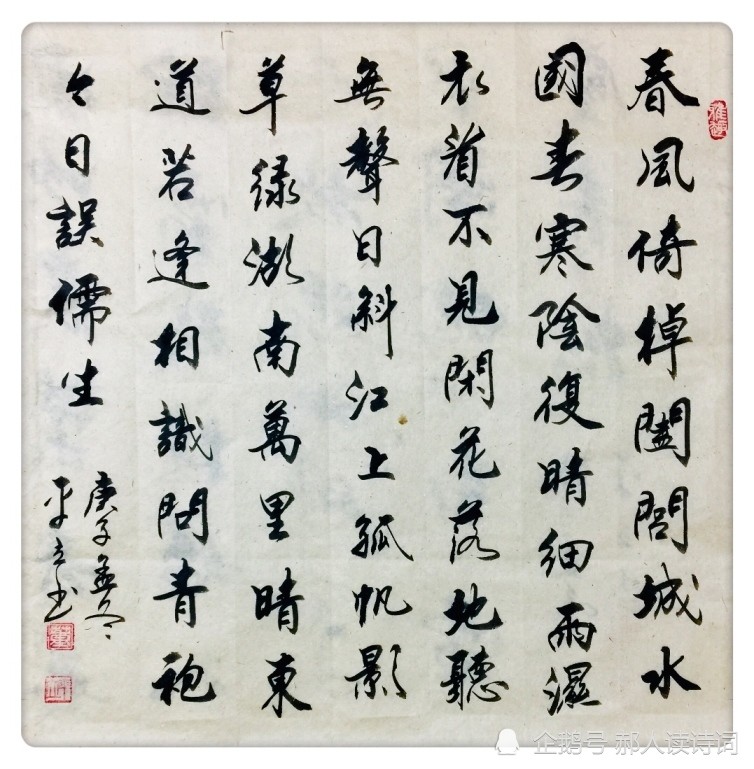 春風倚棹闔閭城水
國春寒陰復晴細雨濕
衣看不見閑花落地聽
無聲日斜江上孤帆影
草綠湖南萬里晴東
道若逢相識問青袍
今日誤儒生
庚子孟冬
平立书
企鹅号 郝人读诗词